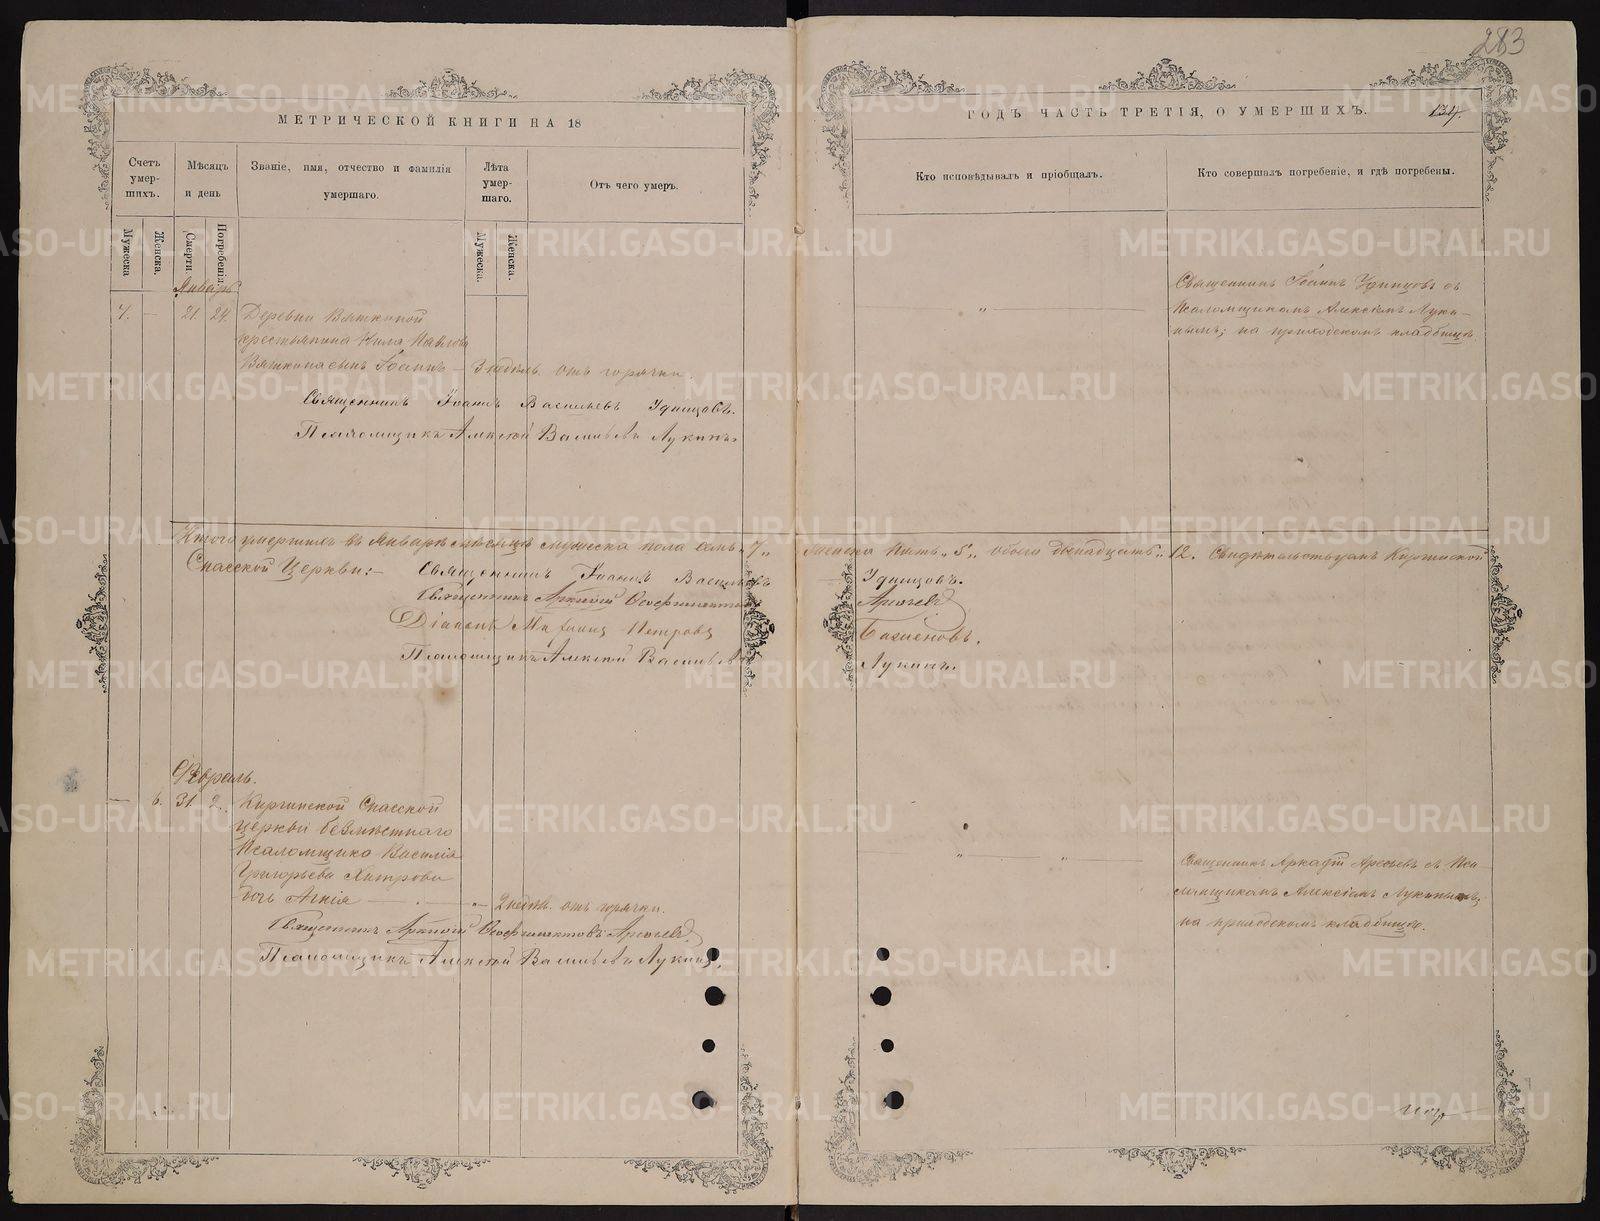 283
МЕТРИЧЕСКОЙ КНИГИ НА 18
ГОДЪ ЧАСТЬ ТРЕТІЯ, О УМЕРШИХЪ.
134.
Счетъ умер-шихъ.
Мѣсяцъ и день
Званіе, имя, отчество и фамилія умершаго.
Лѣта умер-шаго.
Отъ чего умеръ.
Кто исповѣдывалъ и пріобщалъ.
Кто совершалъ погребеніе, и гдѣ погребены.
Мужеска
Женска.
Смерти.
Погребенія.
Мужеска.
Женска.
Январь
7. — 21. 24. Деревни Вяткиной
крестьянина Павлова
Вяткина сынъ Іоаннъ — 3 недѣль отъ горячки.
Священникъ Іоаннъ Удинцовъ съ
Псаломщикомъ Алексіемъ Луки-
нымъ; на приходскомъ кладбищѣ.
Священникъ Іоаннъ Васильевъ Удинцовъ.
Псаломщикъ Алексій Васильевъ Лукинъ.
Итого умершихъ въ Январѣ мѣсяцѣ мужеска пола семь "7"
женска пять "5" обоего двѣнадцать "12. Свидѣтельствуемъ Киргинской
Спасской Церкви:— Священникъ Іоаннъ Васильевъ
Удинцовъ.
Священникъ Аркадій
Арефьевъ
Діаконъ Петровъ
Баженовъ.
Псаломщикъ Алексій Васильевъ
Лукинъ.
Февраль.
— 6. 31. 2. Киргинской Спасской
церкви безмѣстнаго
Псаломщика Василія
Григорьева Хитрова
дочь Агнія — 2 недѣл. отъ горячки.
Священникъ Аркадій Арефьевъ съ Пса-
ломщикомъ Алексіемъ Лукинымъ;
на приходскомъ кладбищѣ.
Священникъ Аркадій Арефьевъ
Псаломщикъ Алексій Васильевъ Лукинъ.
METRIKI.GASO-URAL.RU